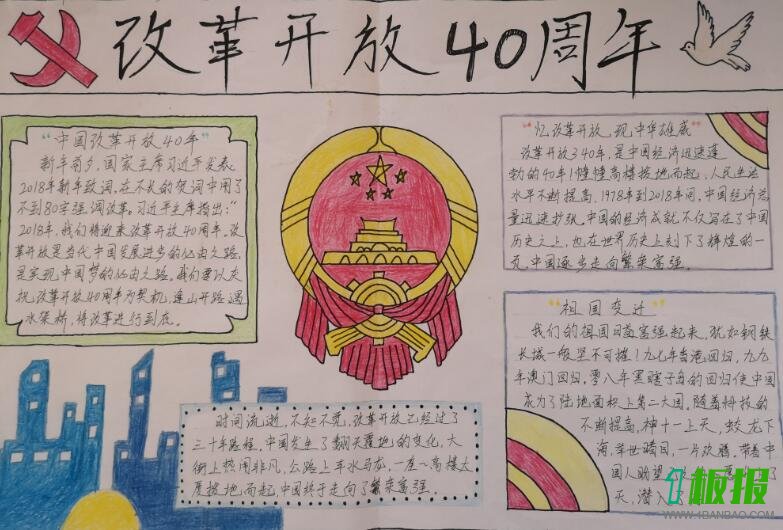 改革开放40周年
“中国改革开放40年”
新年前夕,国家主席习近平发表
2018年新年致词,在不长的贺词中用了
不到80字强调改革。习近平主席指出:“
2018年,我们将迎来改革开放40周年,改
革开放是当代中国发展进步的必由之路,
是实现中国梦的必由之路。我们要以庆
祝改革开放40周年为契机,逢山开路,遇
水架桥,将改革进行到底。
“忆改革开放,现中华雄底”
改革开放340年,是中国经济迅速蓬
勃的40年!幢幢高楼拔地而起,人民生活
水平不断提高,1978年到2018年间,中国经济总
量迅速扩张,中国的经济成就不仅写在了中国
历史之上,也在世界历史上刻下了辉煌的一
页,中国逐步走向繁荣富强。
“祖国变迁”
我们的祖国日益富强起来,犹如钢铁
长城一般坚不可摧!九七年香港回归,九九
年澳门回归,零八年黑瞎子岛的回归使中国
成为了陆地面积上第二大国,随着科技的
不断提高,神十一上天,蛟龙下
海,举世瞩目,一片欢腾,带着中
国人盼望
天,潜入
时间流逝,不知不觉,改革开放已经过了
三十年路程,中国发生了翻天覆地的变化,大
街上热闹非凡,公路上车水马龙,一座座高楼大
厦拔地而起,中国终于走向了繁荣富强。
板报
WWW.1BANBAO.COM